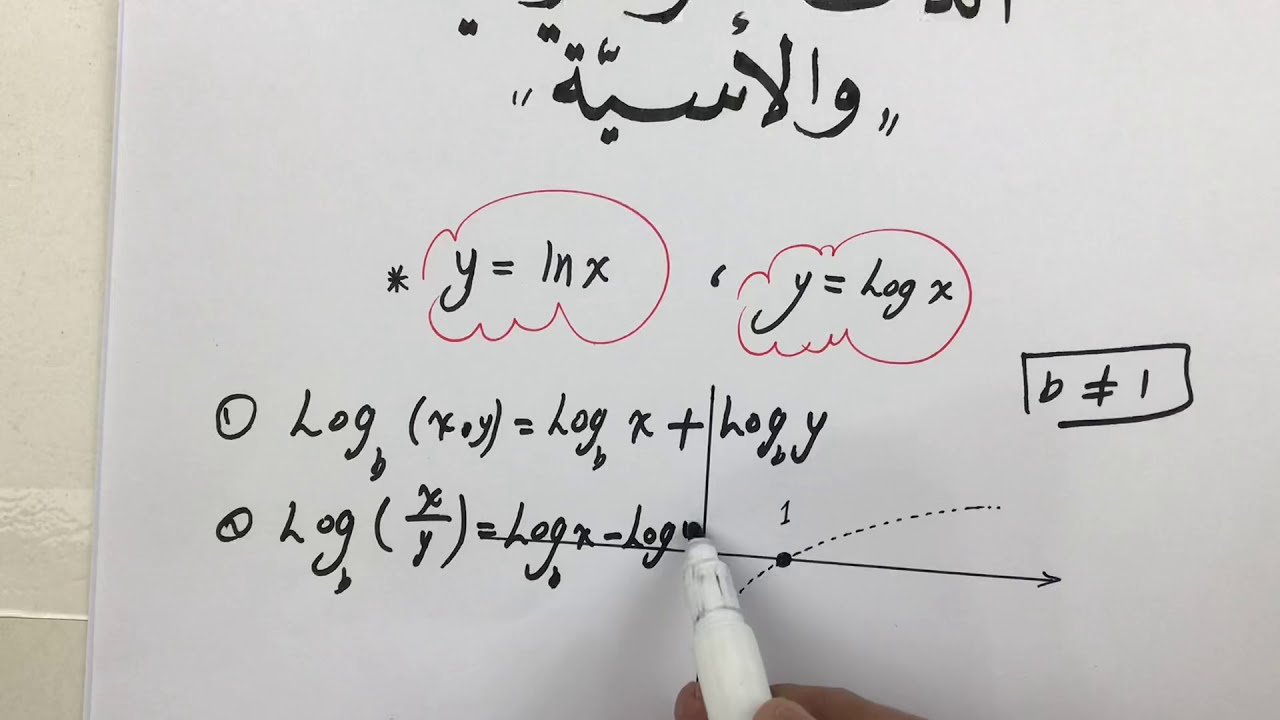 "والأسيّة"
* y = ln x ، y = Log x
b ≠ 1
① Log_b (x.y) = Log_b x + Log_b y
② Log_b (x/y) = Log_b x - Log
1